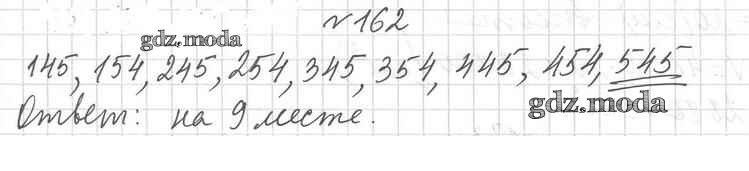 №162
gdz.moda
145, 154, 245, 254, 345, 354, 445, 454, 545
gdz.moda
Ответ: на 9 месте.